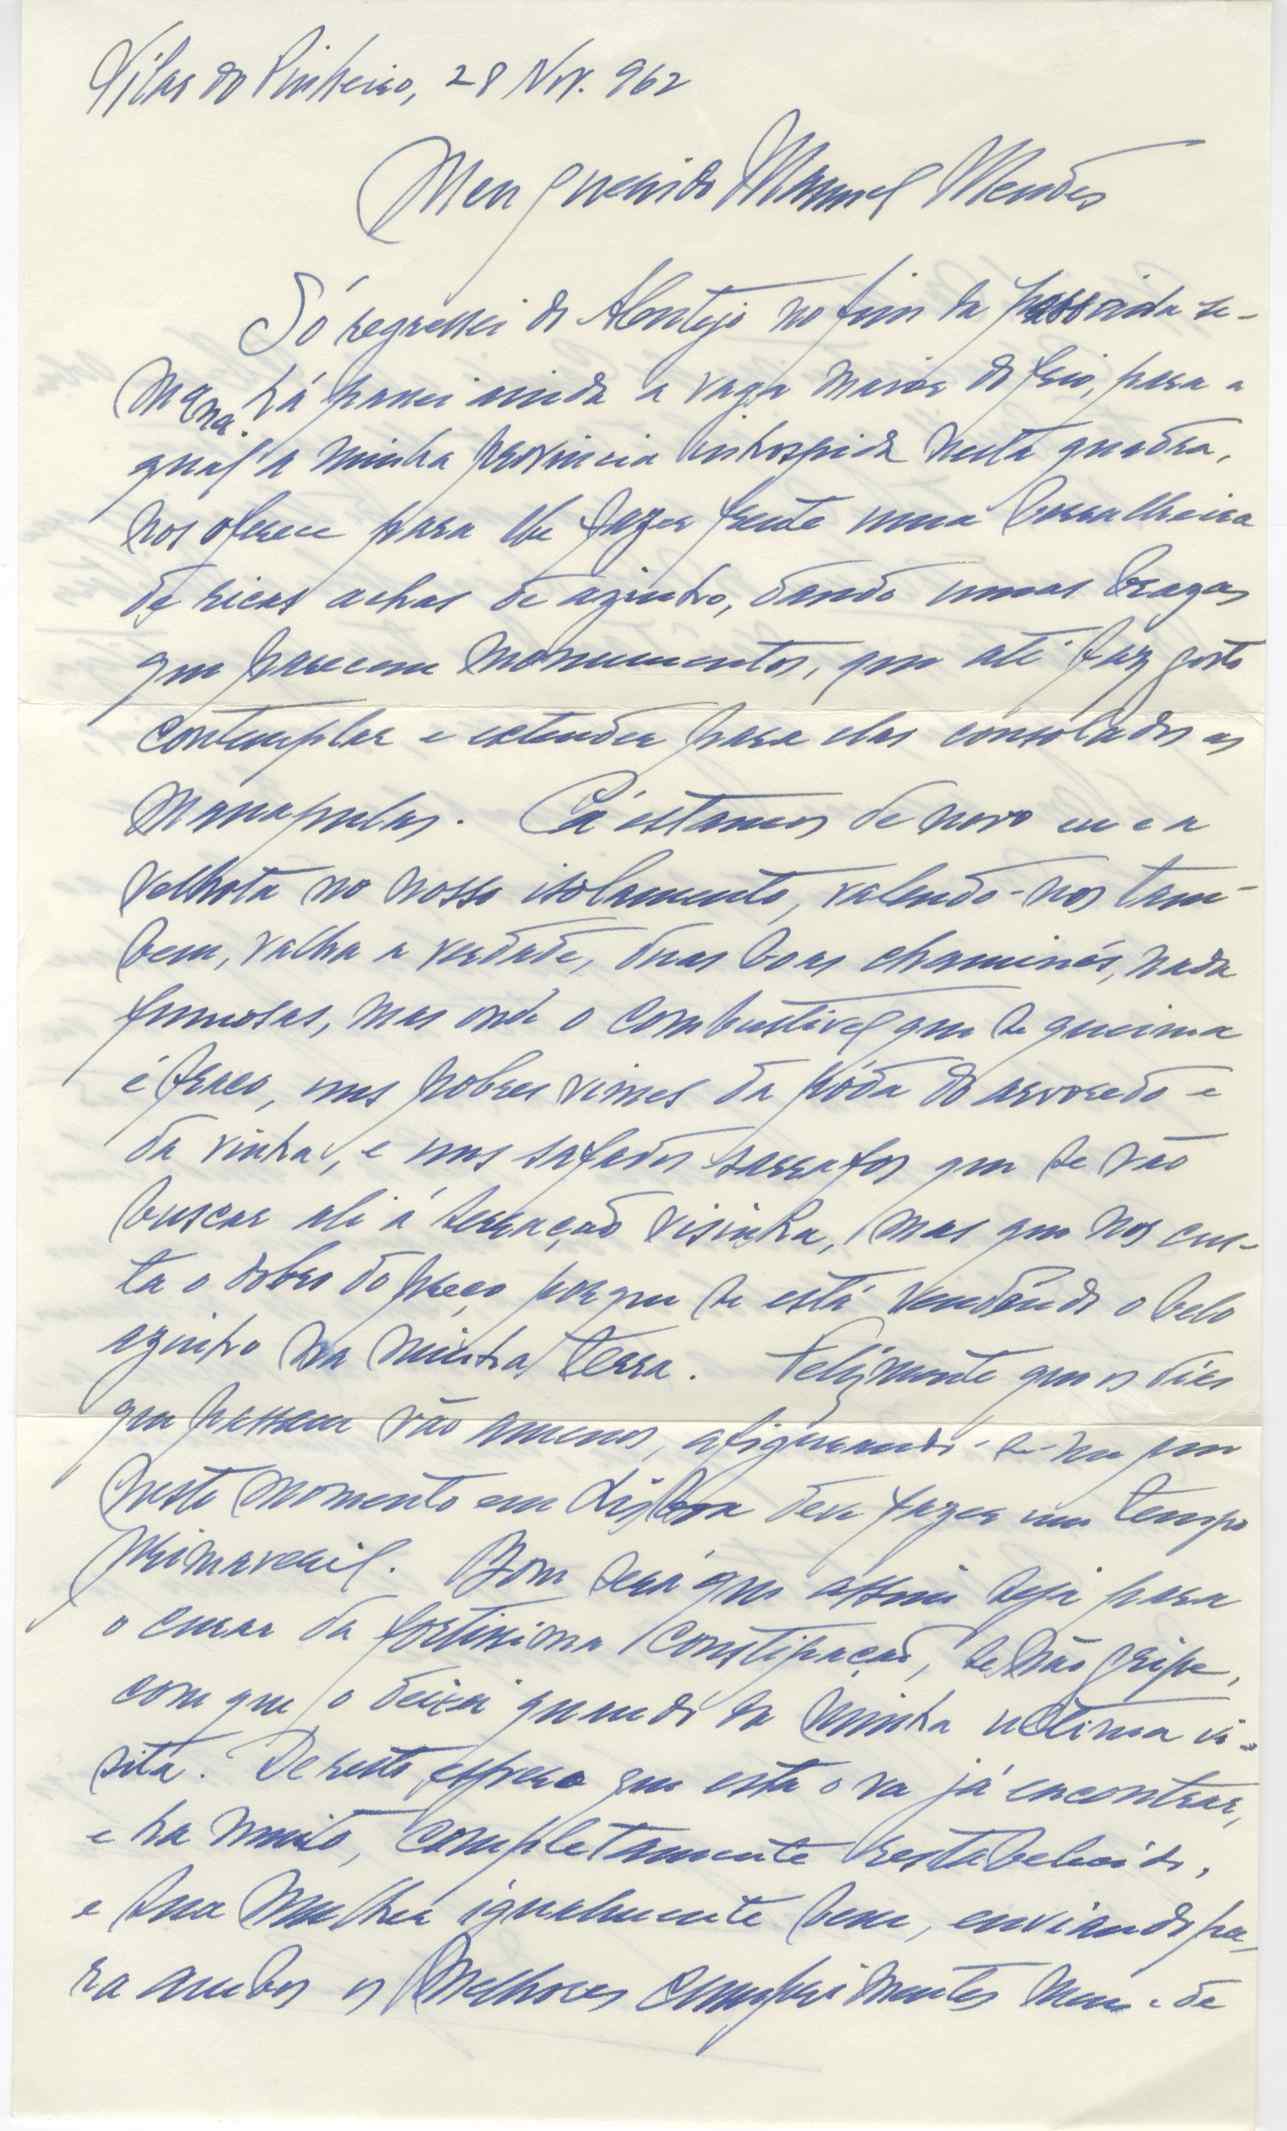 Vilar do Pinheiro, 28 Nov. 962
Meu querido Manuel Mendes
Só regressei do Alentejo no fim da passada se-
mana. Lá passei ainda a vaga maior do frio, para a
qual a minha provincia inhospida nesta quadra,
nos oferece para lhe fazer frente uma borralheira
de ricas achas de azinho, dando umas brazas
que parecem monumentos, que até faz gosto
contemplar e extender para elas consolados as
manapulas. Cá estamos de novo eu e a
velhota no nosso isolamento, valendo-nos tam-
bem, valha a verdade, duas boas chaminés, nada
fumosas, mas onde o combustivel que se queima
é fraco, uns pobres vimes da póda do arvoredo e
da vinha, e uns safados sarrafos que se vão
buscar ali á serração visinha, mas que nos cus-
ta o dobro do preço porque se está vendendo o belo
azinho na minha terra. Felizmente que os dias
que passam vão amenos, afigurando-se-me que
neste momento em Lisboa deve fazer um tempo
primaveril. Bom será que assim seja para
o curar da fortissima constipação, se não gripe,
com que o deixei quando da minha ultima vi-
sita. De resto espero que esta o vá já encontrar,
e ha muito, completamente restabelecido,
e sua mulher igualmente bem, enviando pa-
ra ambos os melhores cumprimentos meus e de